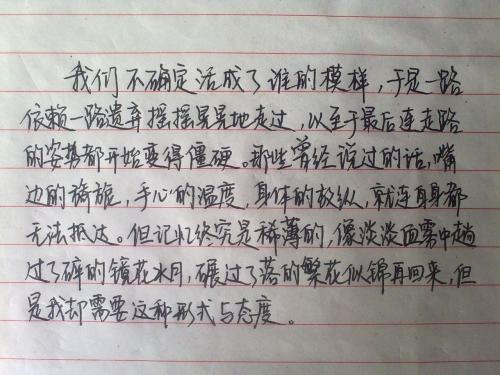 我们不确定活成了谁的模样，于是一路
依赖一路遗弃摇摇晃晃地走过，以至于最后连走路
的姿势都开始变得僵硬。那些曾经说过的话，嘴
边的旖旎，手心的温度，身体的放纵，就连自身都
无法抵达。但记忆终究是稀薄的，像淡淡血雾中趟
过了碎的镜花水月，碾过了落的繁花似锦再回来，但
是我却需要这种形式与态度。